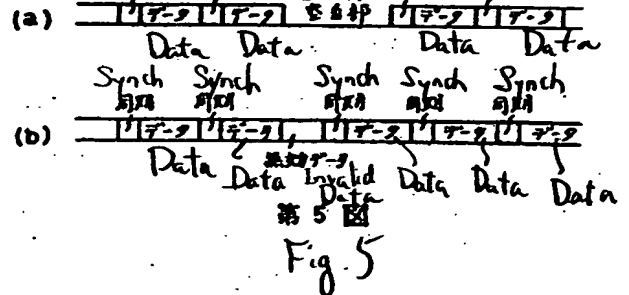 (a) データ データ 空白部 データ データ
Data Data Data Data
Synch Synch Synch Synch Synch
同期 同期 同期 同期 同期
(b) データ データ データ データ データ
無効データ
Data Data Invalid Data Data Data Data
第5図
Fig. 5